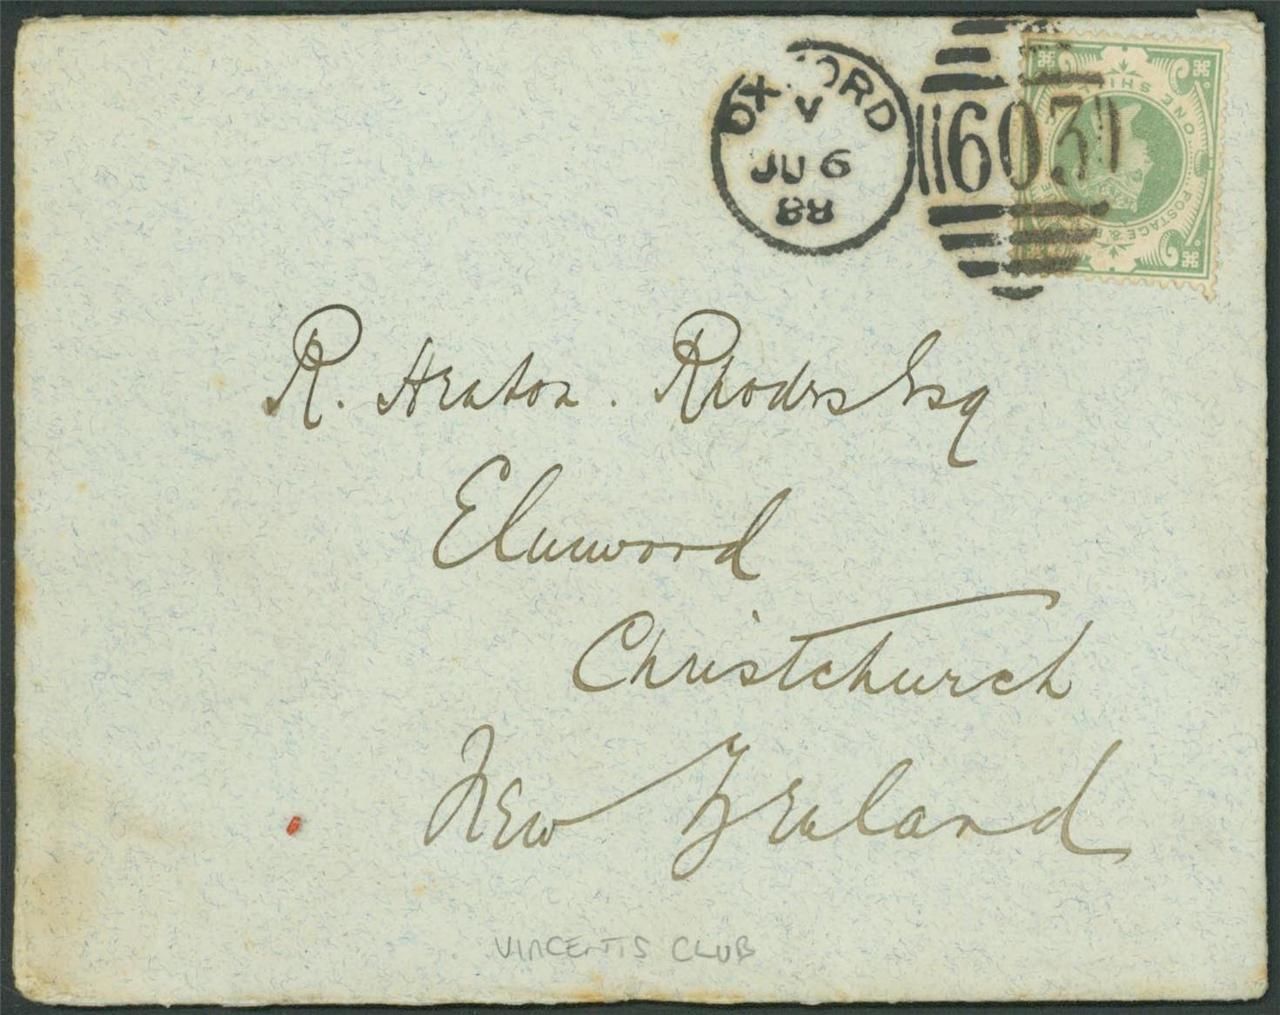 OXFORD
V
JU 6
88
603
ONE SHILL
POSTAGE & RE
R. Heaton. Rhodes Esq
Elmwood
Christchurch
New Zealand
VINCENTS CLUB